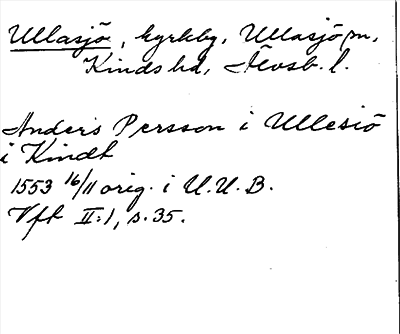 Ullasjö, kyrkby, Ullasjö sn,
Kinds hd, Älvsb. l.
Anders Persson i Ullesiö
i Kindt
1553 16/11 orig. i U.U.B.
Vft II:1, s. 35.